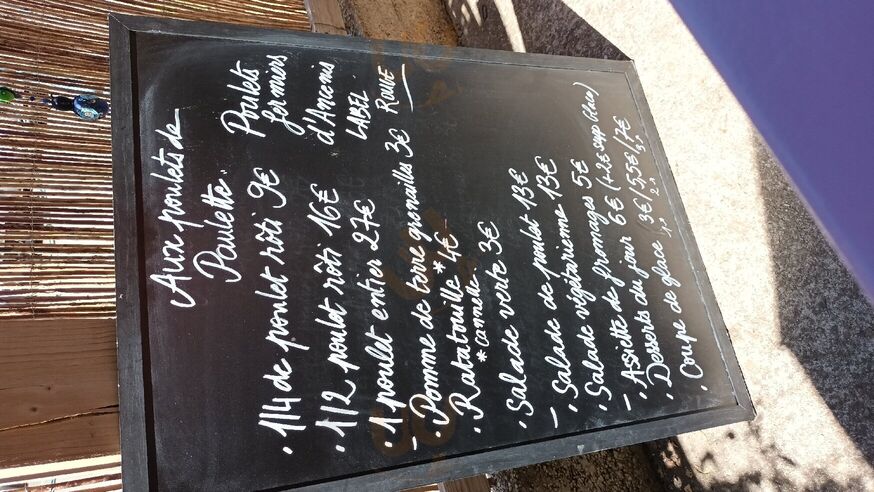 Aux poulets de
Paulette.
Poulets
fermiers
d'Ancenis
LABEL
ROUGE
. 1/4 de poulet rôti 9€
. 1/2 poulet rôti 16€
. 1 poulet entier 27€
. Pomme de terre grenailles 3€
. Ratatouille * 4€
* cannelle
. Salade verte 3€
. Salade de poulet 13€
. Salade végétarienne 13€
. Assiette de fromages 5€
. Desserts du jour 6€ (+2€ supp Glace)
. Coupe de glace 3€/5,5€/7€